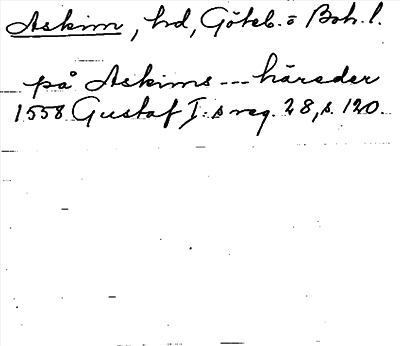 Askim, hd, Göteb. o Boh. l.
på Askims --- häreder
1558 Gustaf I:s reg. 28, s. 120.